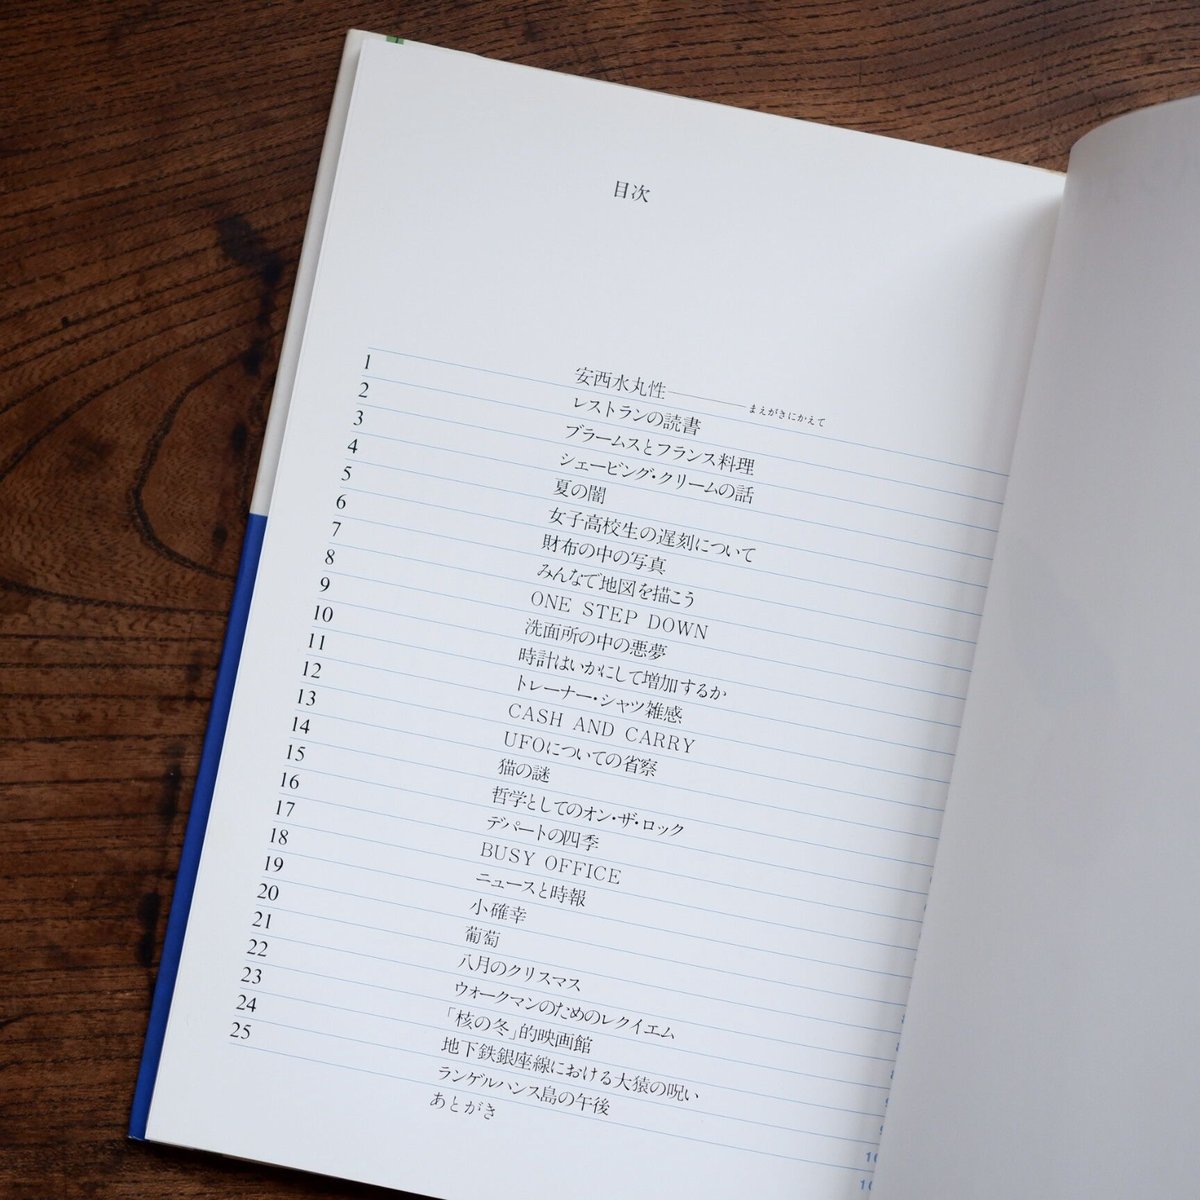 目次
安西水丸性――まえがきにかえて
1 レストランの読書
2 ブラームスとフランス料理
3 シェービング・クリームの話
4 夏の闇
5 女子高校生の遅刻について
6 財布の中の写真
7 みんなで地図を描こう
8 ONE STEP DOWN
9 洗面所の中の悪夢
10 時計はいかにして増加するか
11 トレーナー・シャツ雑感
12 CASH AND CARRY
13 UFOについての省察
14 猫の謎
15 哲学としてのオン・ザ・ロック
16 デパートの四季
17 BUSY OFFICE
18 ニュースと時報
19 小確幸
20 葡萄
21 八月のクリスマス
22 ウォークマンのためのレクイエム
23 「核の冬」的映画館
24 地下鉄銀座線における大猿の呪い
25 ランゲルハンス島の午後
あとがき